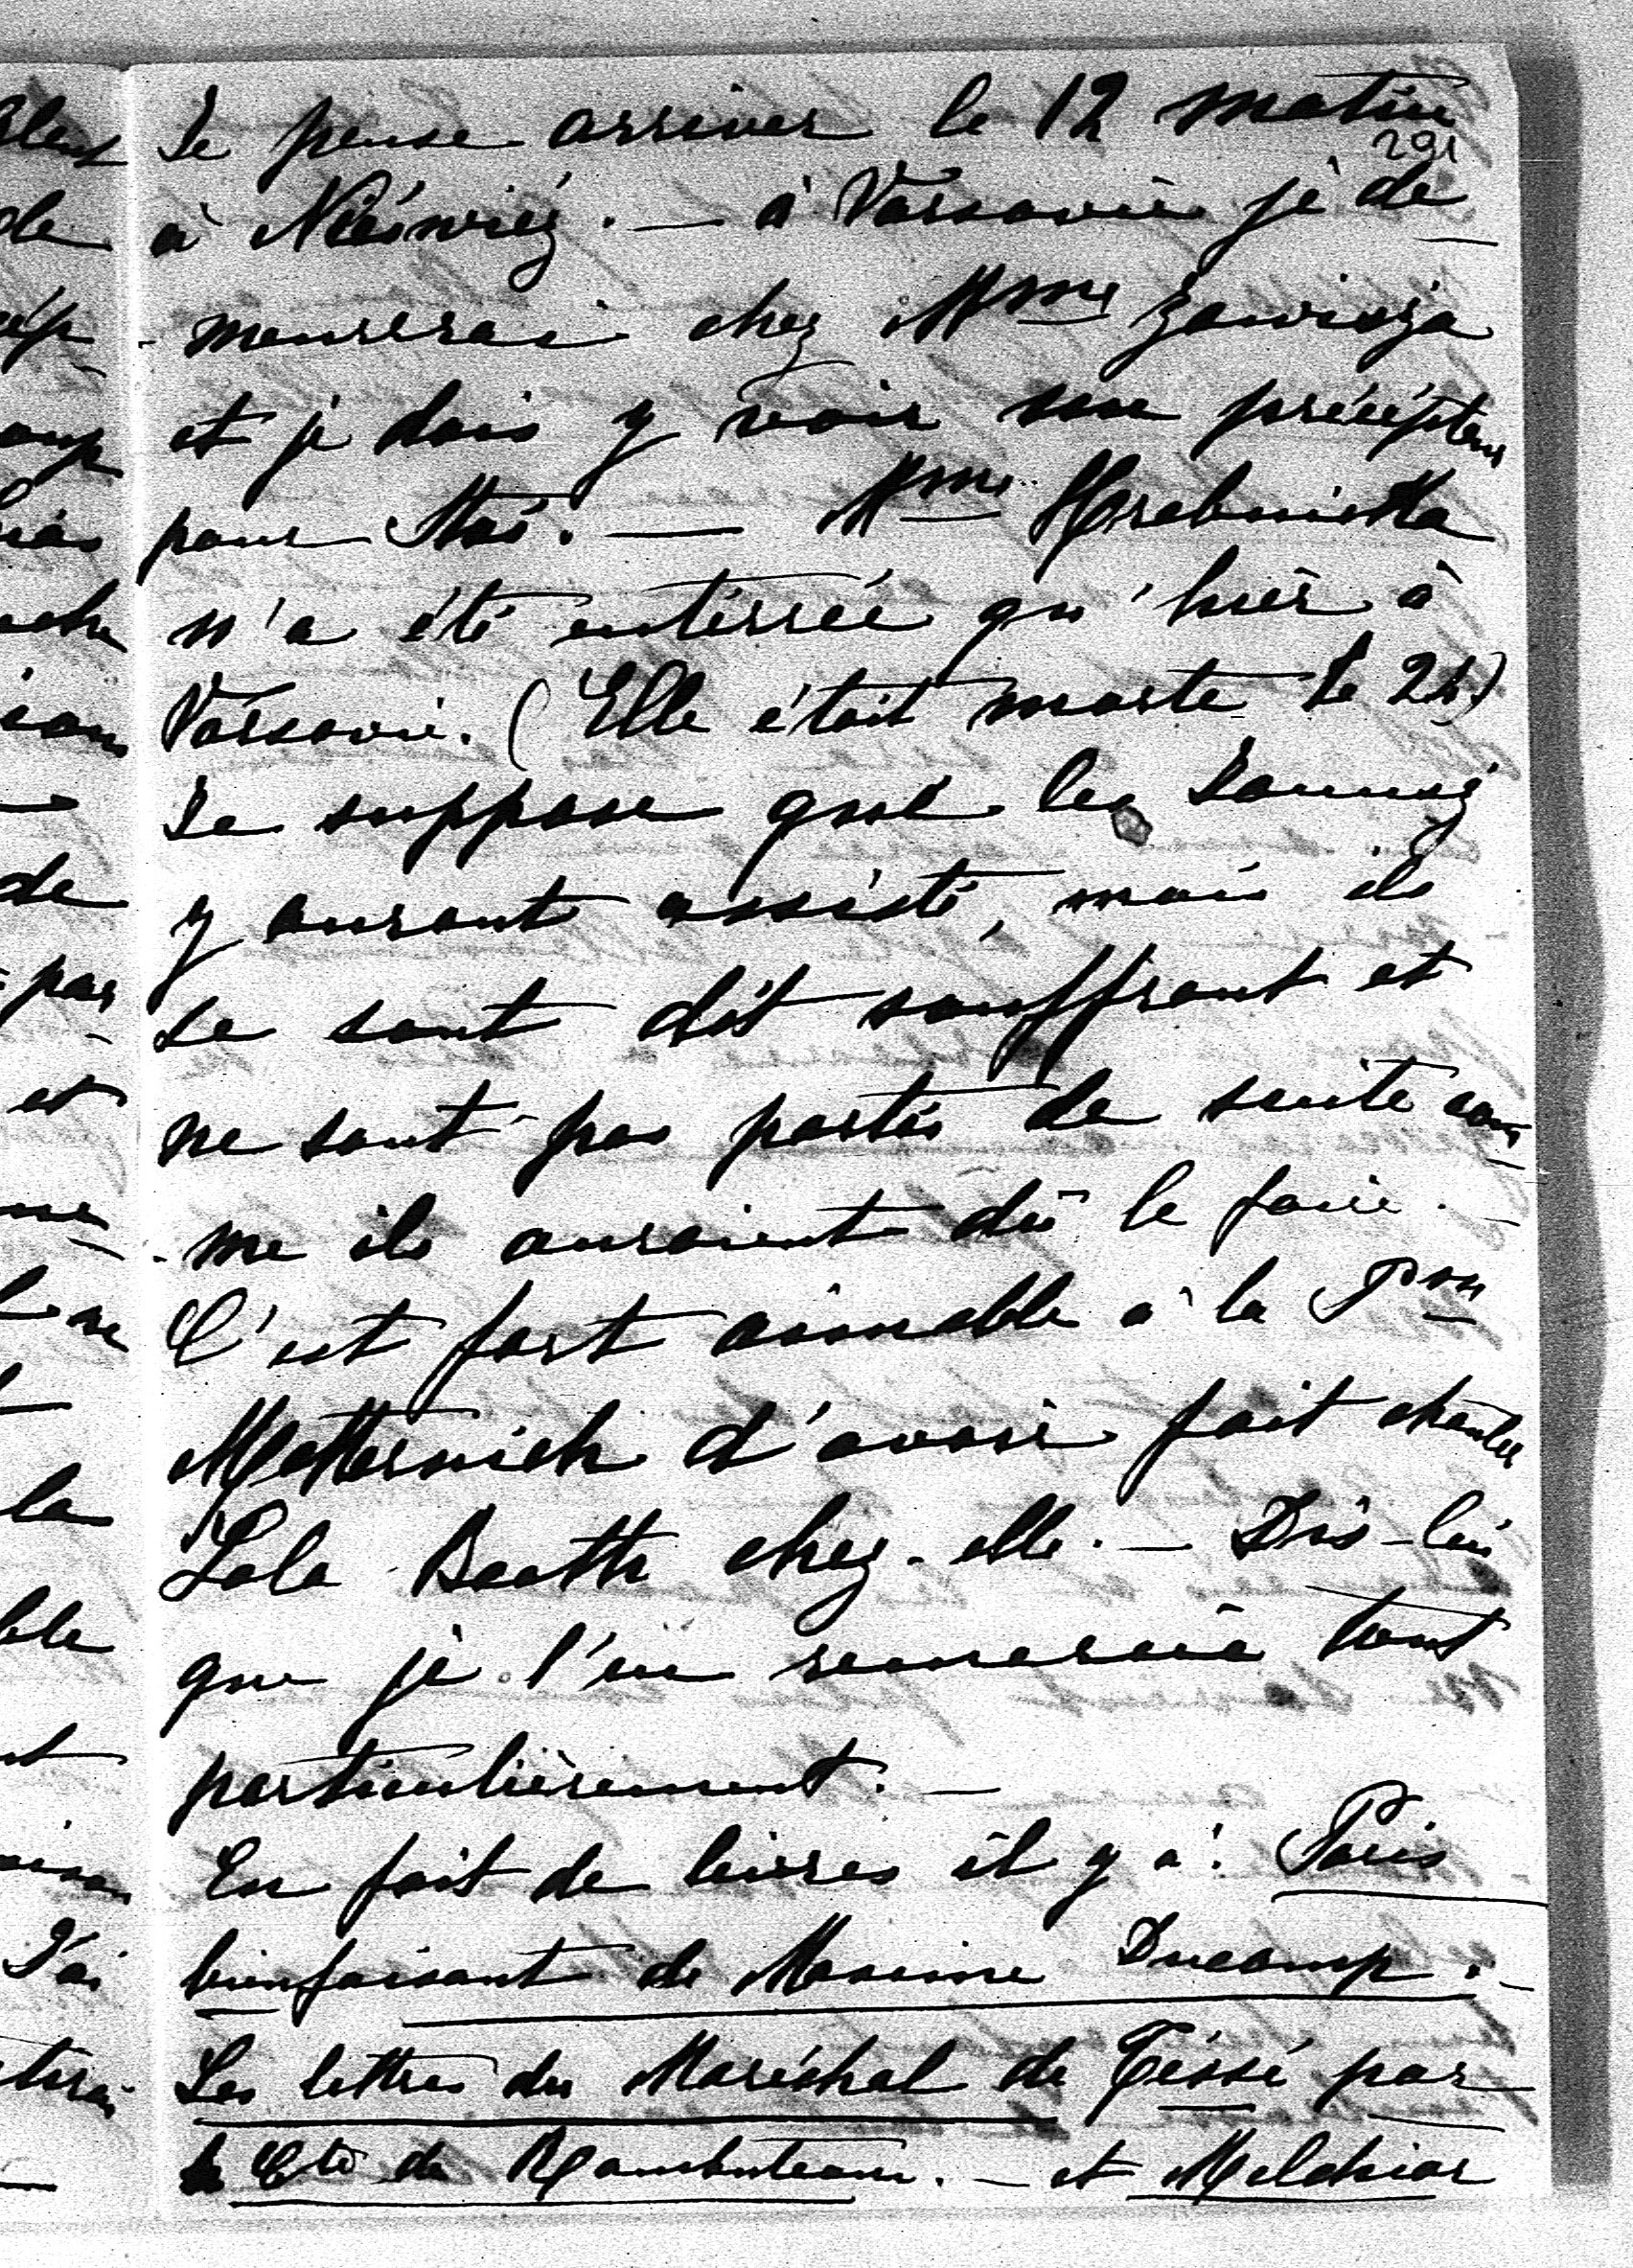 Je pense arriver le 12 matin
291
à Nieśwież. — à Varsovie je de-
-meurerai chez Mme Zawisza
et je dois y voir un précepteur
pour Stas. — Mme Hrebnicka
n'a été enterrée qu'hier à
Varsovie. (Elle était morte le 24)
Je suppose que les
y auront assisté, mais ils
se sont dit souffrant et
ne sont pas partis de suite com-
-me ils auraient dû le faire. -
C'est fort aimable à la Psse
Metternich d'avoir fait chanter
Lola Beeth chez-elle. — Dis-lui
que je l'en remercie tout
particulièrement. —
En fait de livres il y a: Paris
bienfaisant de Maxime Ducamp. -
Les lettres du Maréchal de Tessé par
le Cte de Rambuteau. — et Melchior